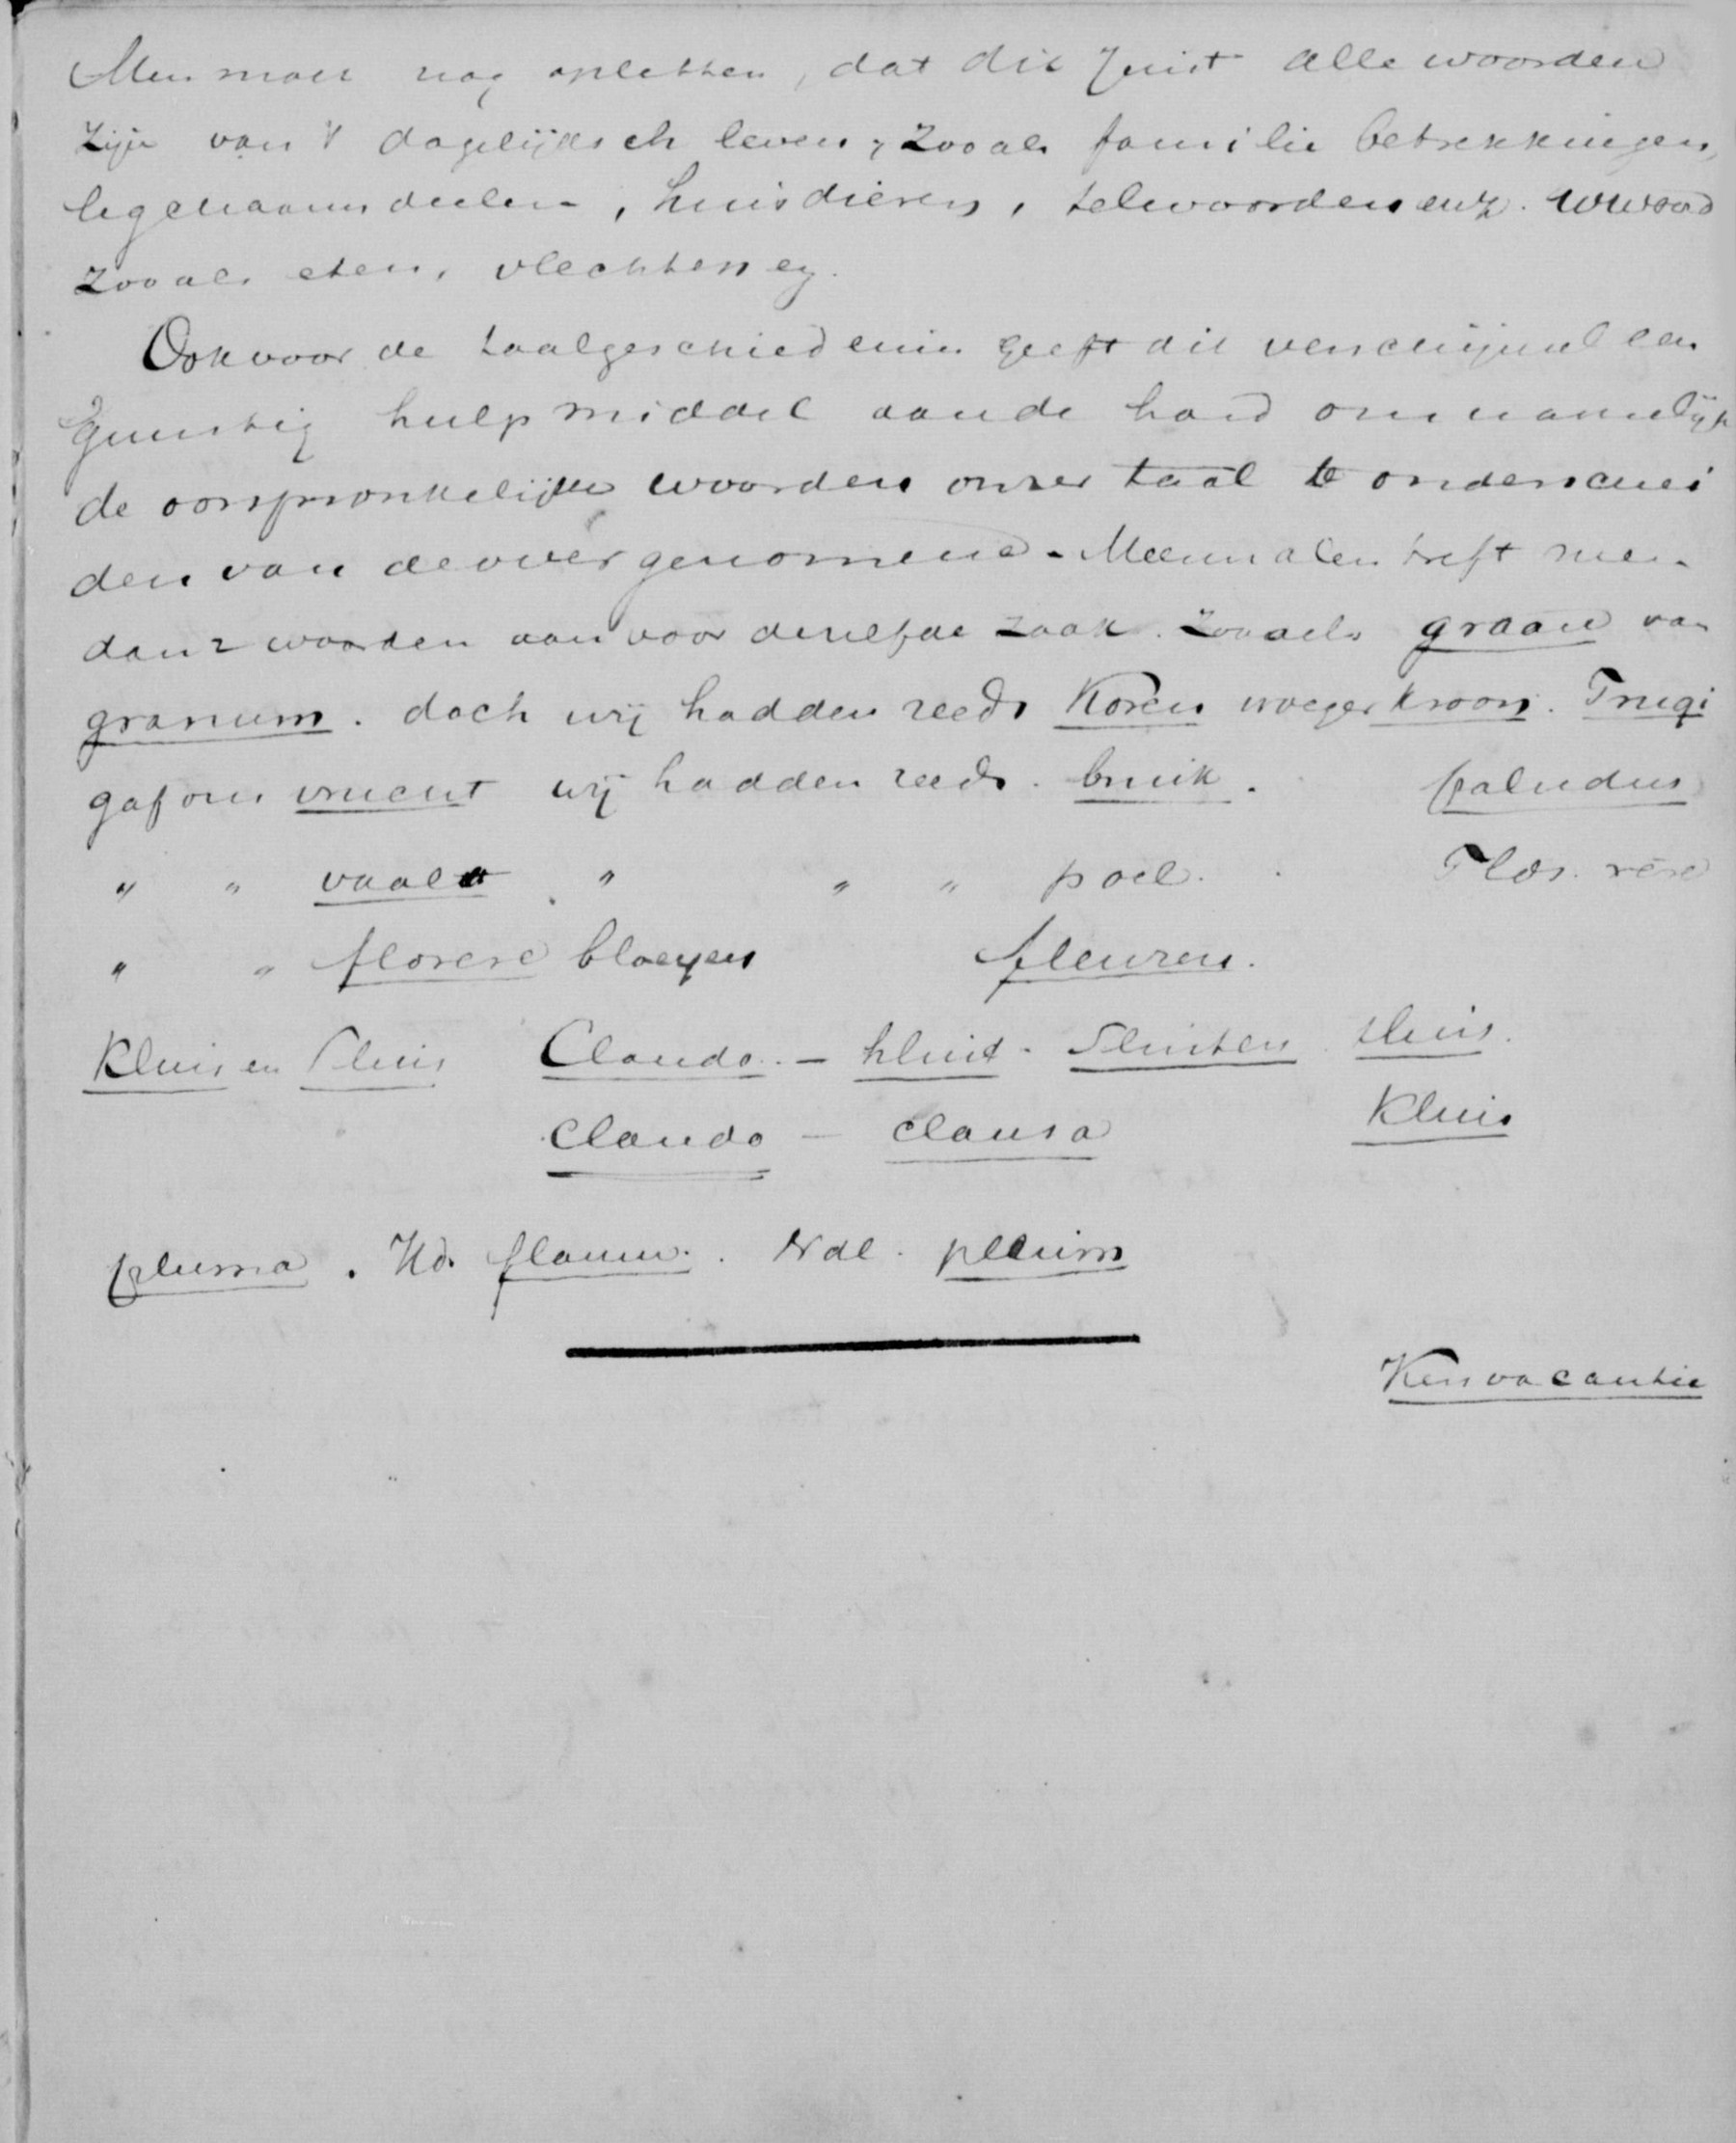 Men moet nog opletten, dat dit juist alle woorden
zijn van 't dagelijksch leven, zooals familie betrekkingen,
ligchaamsdeelen, huisdieren, telwoorden enz. WWoord
zooals eten, vlechten enz.
Ook voor de taalgeschiedenis geeft dit verschijnsel een
gunstig hulpmiddel aan de hand om namelijk
de oorspronkelijke woorden onzer taal te onderschei
den van de overgenomene. Meermalen treft men
dan 2 woorden aan voor dezelfde zaak. Zooals graan van
granum. doch wij hadden reeds Koren vroeger kroon. Frugi
gaf ons vrucht wij hadden reeds. bruik. paludus
" " vaale " " " poel. Flos. rere
" " florere bloeyen fleuren.
Kluis en Sluis Claudo. - hluit - Sluiten sluis.
Claudo - clausa Kluis
pluma. Hd. flaum. Ndl. pluim
Kersvacantie